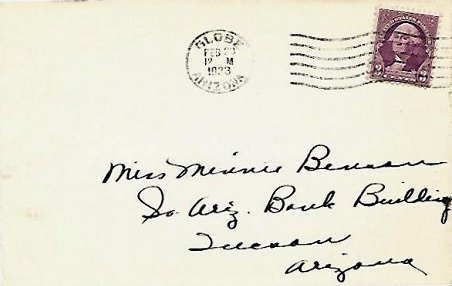 GLOBE
FEB 23
12 M
1933
ARIZONA
3 3
Miss Minnie Benson
So Ariz. Bank Building
Tucson
Arizona